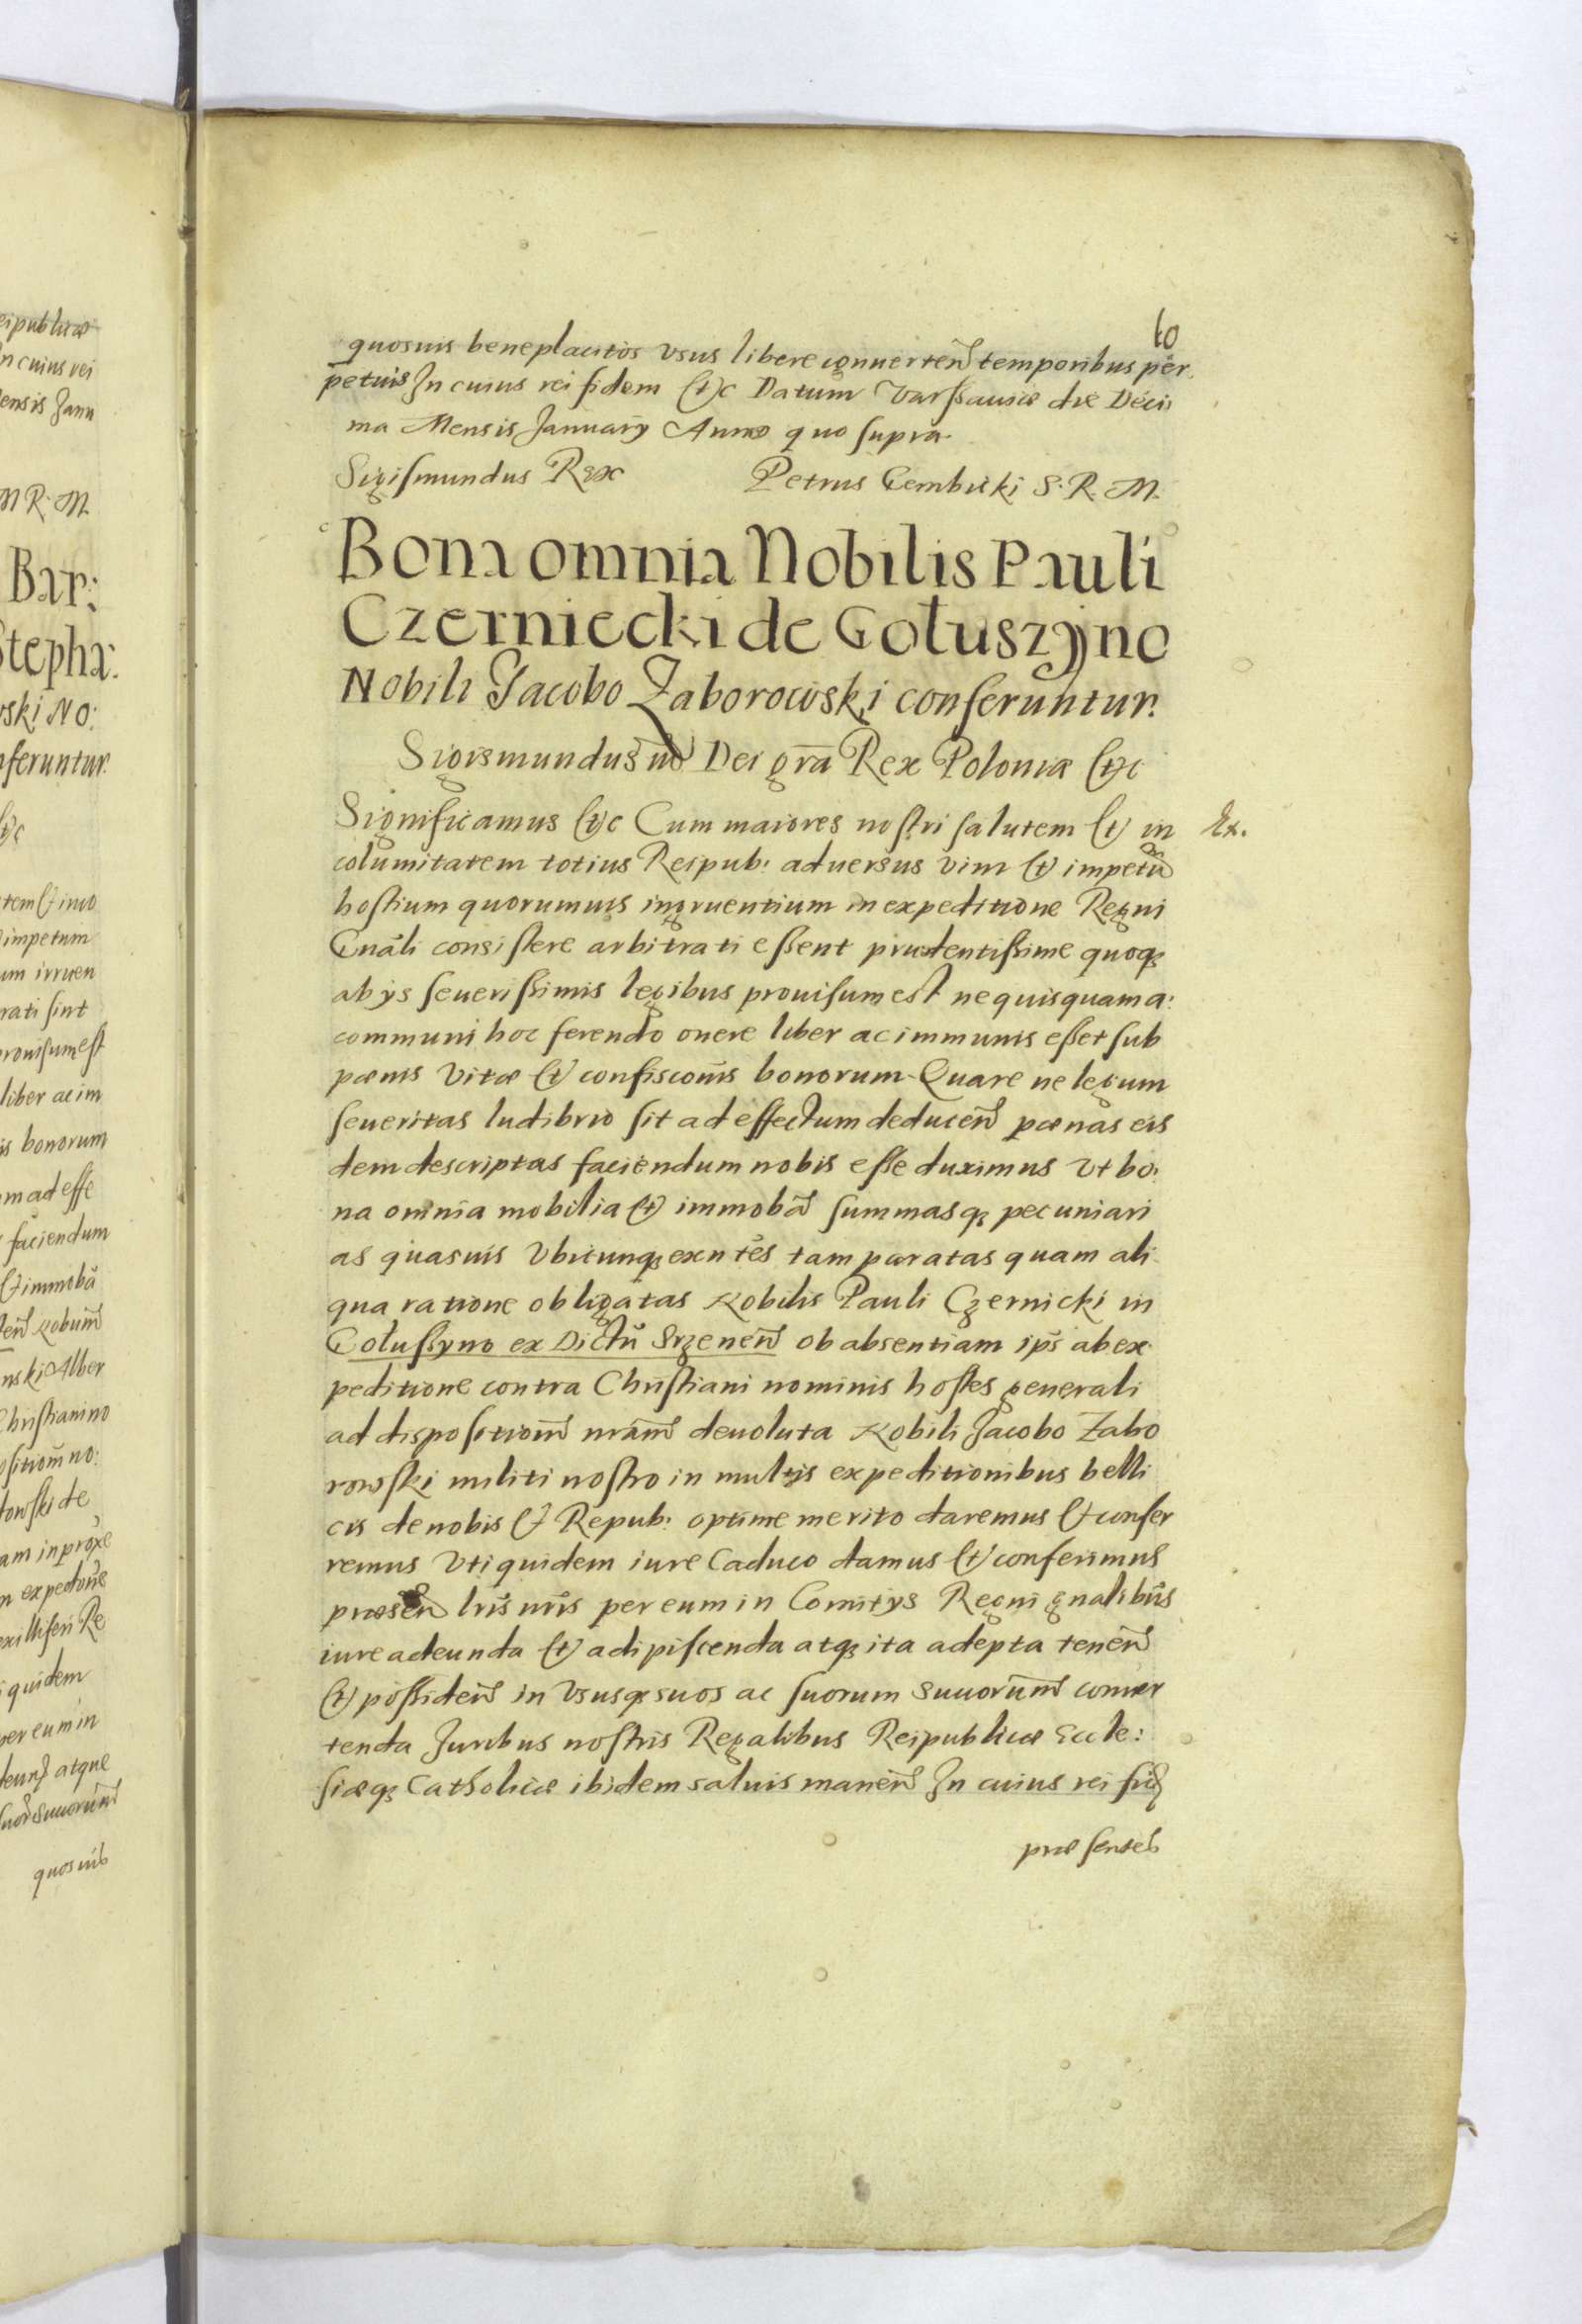 eipublicæ
n cuius rei
ensis Janu
R. M.
Bar:
Stepha:
wski No:
nferuntur
&c
tem & inco
impetum
um irruen
rati sint
rouisum est
liber ac im
is bonorum
m ad effe
faciendum
& immobã
nski Alber
Christiani no
ositionẽ no:
towski de
am in proxe
n expeditõne
exilliferi Re
iquidem
per eum in
atque
quosuis
60
quosuis beneplacitos vsus libere conuerteñ temporibus per
petuis In cuius rei fidem &c Datum Varssauiæ die Deci
ma Mensis January Anno quo supra
Sigismundus Rex Petrus Gembicki S. R. M.
Bona omnia Nobilis Pauli
Czerniecki de Gołuszyno
Nobili Jacobo Zaborowski conferuntur.
Sigismundus Dei grã Rex Poloniæ &c
Significamus &c Cum maiores nostri salutem & in
Ex.
columitatem totius Reipub: aduersus vim & impetũ
hostium quorumuis ingruentium in expeditione Regni
Gnãli consistere arbitrati essent prudentissime quoq
ab ys seuerissimis legibus prouisum est ne quisquam a:
communi hoc ferendo onere liber ac immunis esset sub
pœnis vitæ & confiscoñis bonorum Quare ne legum
seueritas ludibrio sit ad effectum deduceñ pœnas eis
dem descriptas faciendum nobis esse duximus vt bo:
na omnia mobilia & immobã summasq pecuniari
as quasuis vbicunq exñtes tam paratas quam ali
qua ratione obligatas Nobilis Pauli Czernicki in
Golussyno ex Dictũ Srzeneñ ob absentiam ips̃ ab ex
peditione contra Christiani nominis hostes generali
ad dispositionẽ nrãm deuoluta Nobili Jacobo Zabo
rowski militi nostro in multis expeditionibus belli
cis de nobis & Repub: optime merito daremus & confer
remus vti quidem iure caduco damus & conferimus
præseñ lris nris per eum in Comitys Regni gnalibus
iure adeunda & adipiscenda atq ita adepta teneñ
& possideñ in vsusq suos ac suorum succorum conuer
tenda Juribus nostris Regalibus Reipublicæ Eccle:
siæq Catholicæ ibidem saluis maneñ In cuius rei fid
præsentes